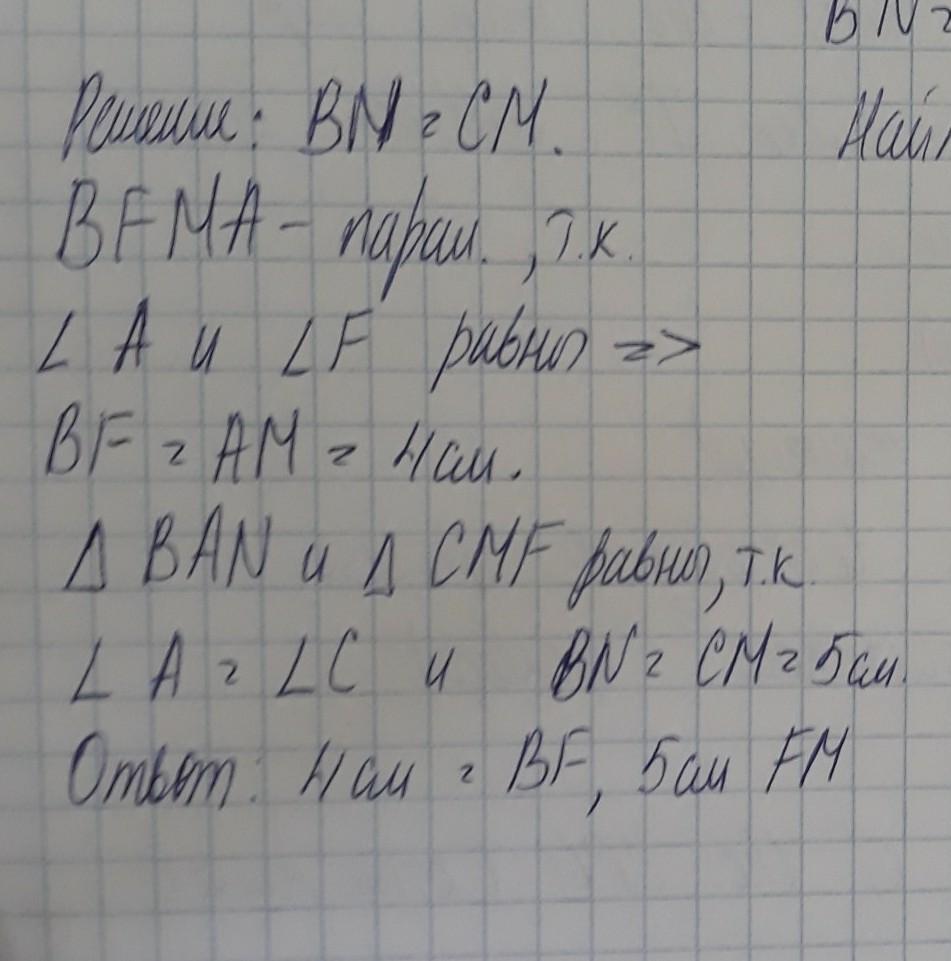 BN =
Най
Решение: BN = CM.
BFMA - парал., т.к.
∠ A и ∠F равны =>
BF = AM = 4 см.
Δ BAN и Δ CMF равны, т.к.
∠ A = ∠C и BN = CM = 5см.
Ответ: 4 см = BF, 5см FM